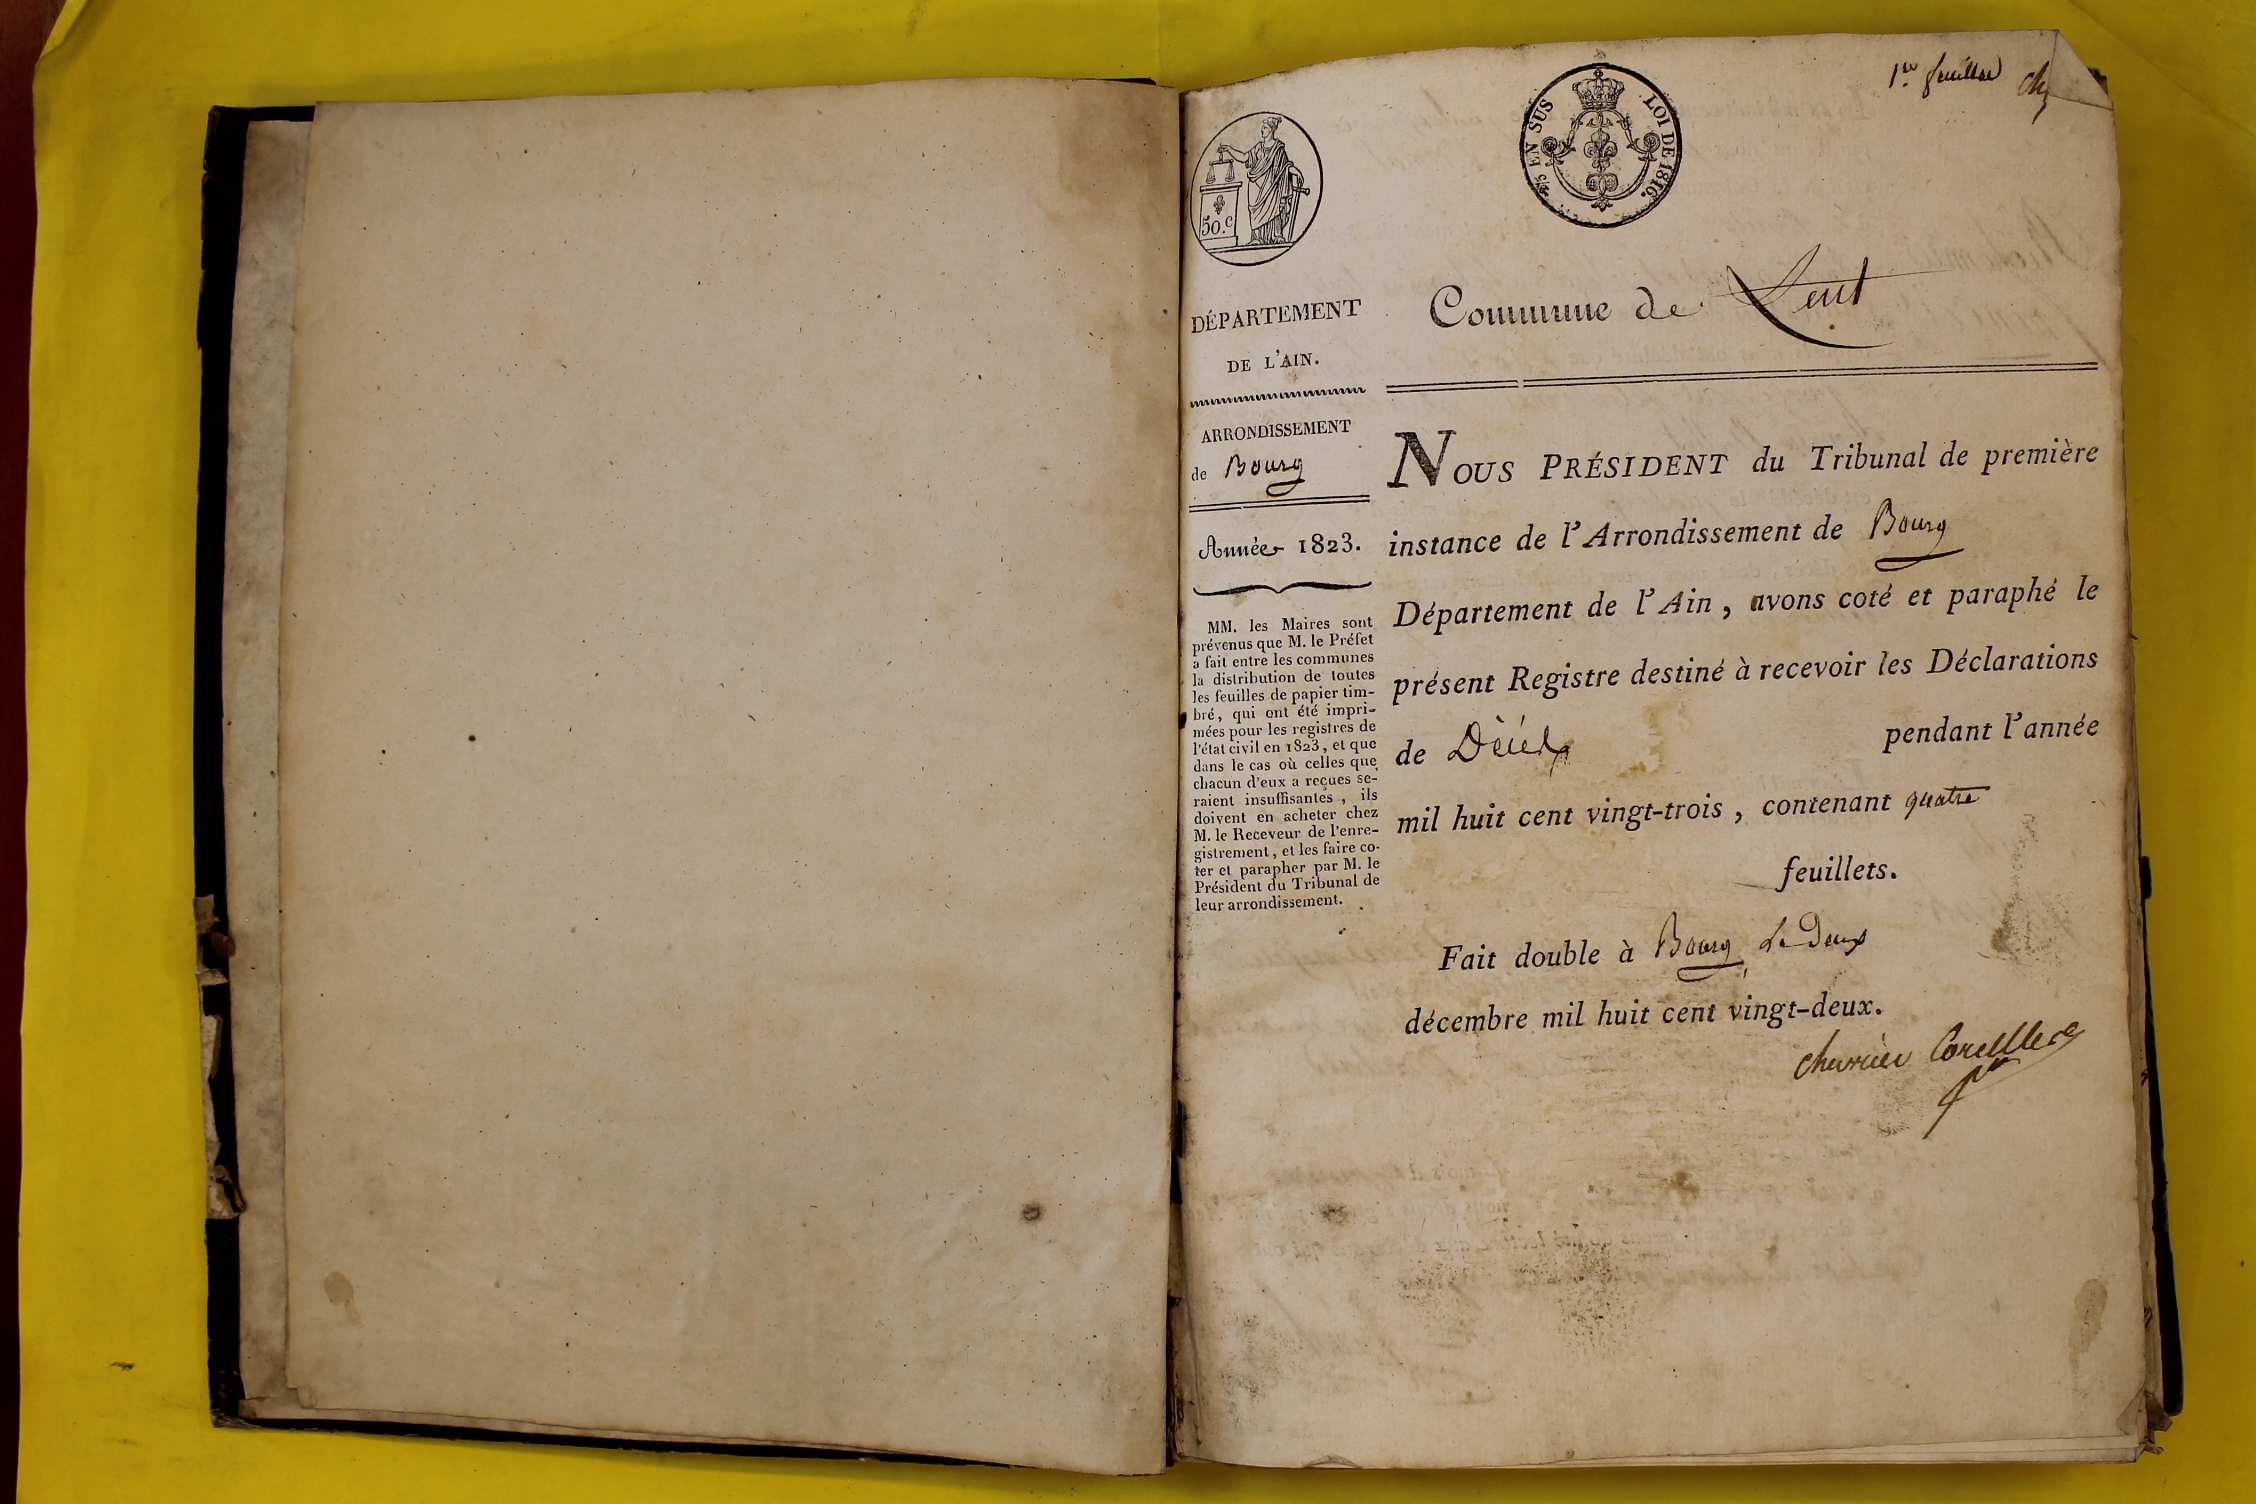 1re feuillet
50.c
EN SUS
LOI DE 1816.
DÉPARTEMENT
DE L'AIN.
ARRONDISSEMENT
de Bourg
Année 1823.
MM. les Maires sont
prévenus que M. le Préfet
a fait entre les communes
la distribution de toutes
les feuilles de papier tim-
bré, qui ont été impri-
mées pour les registres de
l'état civil en 1823, et que
dans le cas où celles que
chacun d'eux a reçues se-
raient insuffisantes, ils
doivent en acheter chez
M. le Receveur de l'enre-
gistrement, et les faire co-
ter et parapher par M. le
Président du Tribunal de
leur arrondissement.
Commune de Lent
NOUS PRÉSIDENT du Tribunal de première
instance de l'Arrondissement de Bourg
Département de l'Ain, avons coté et paraphé le
présent Registre destiné à recevoir les Déclarations
de Décès pendant l'année
mil huit cent vingt-trois, contenant quatre
feuillets.
Fait double à Bourg Le Deux
décembre mil huit cent vingt-deux.